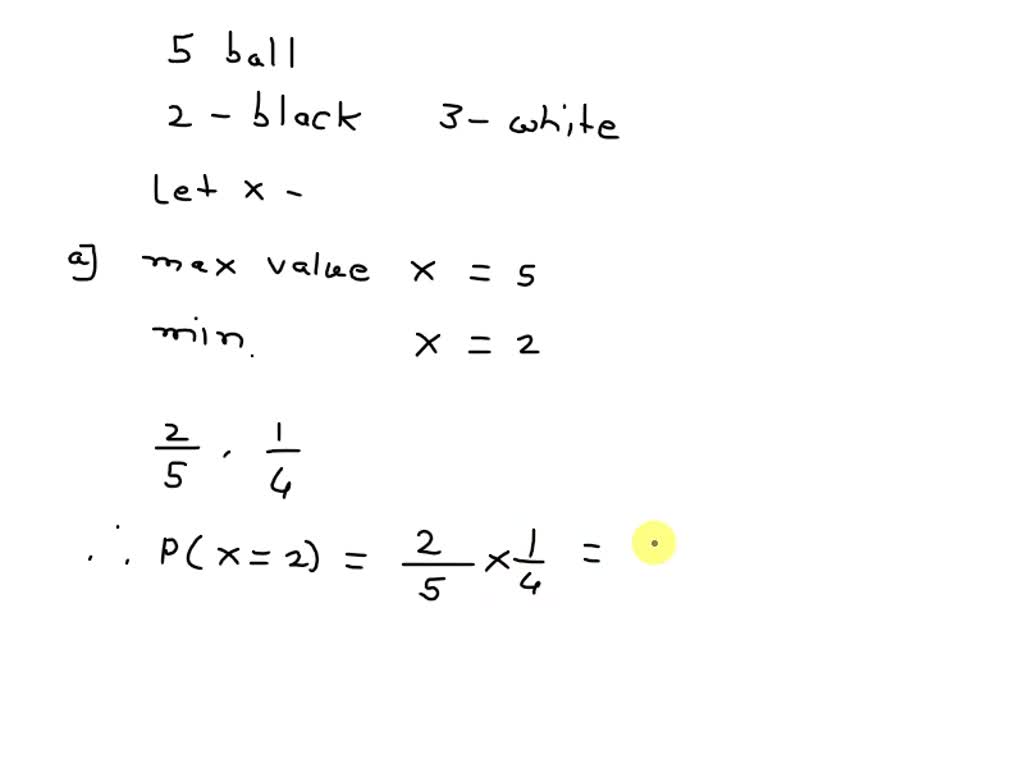 5 ball
2 - black 3 - white
Let x -
a] max value x = 5
min. x = 2
2/5 . 1/4
∴ P(x=2) = 2/5 × 1/4 =